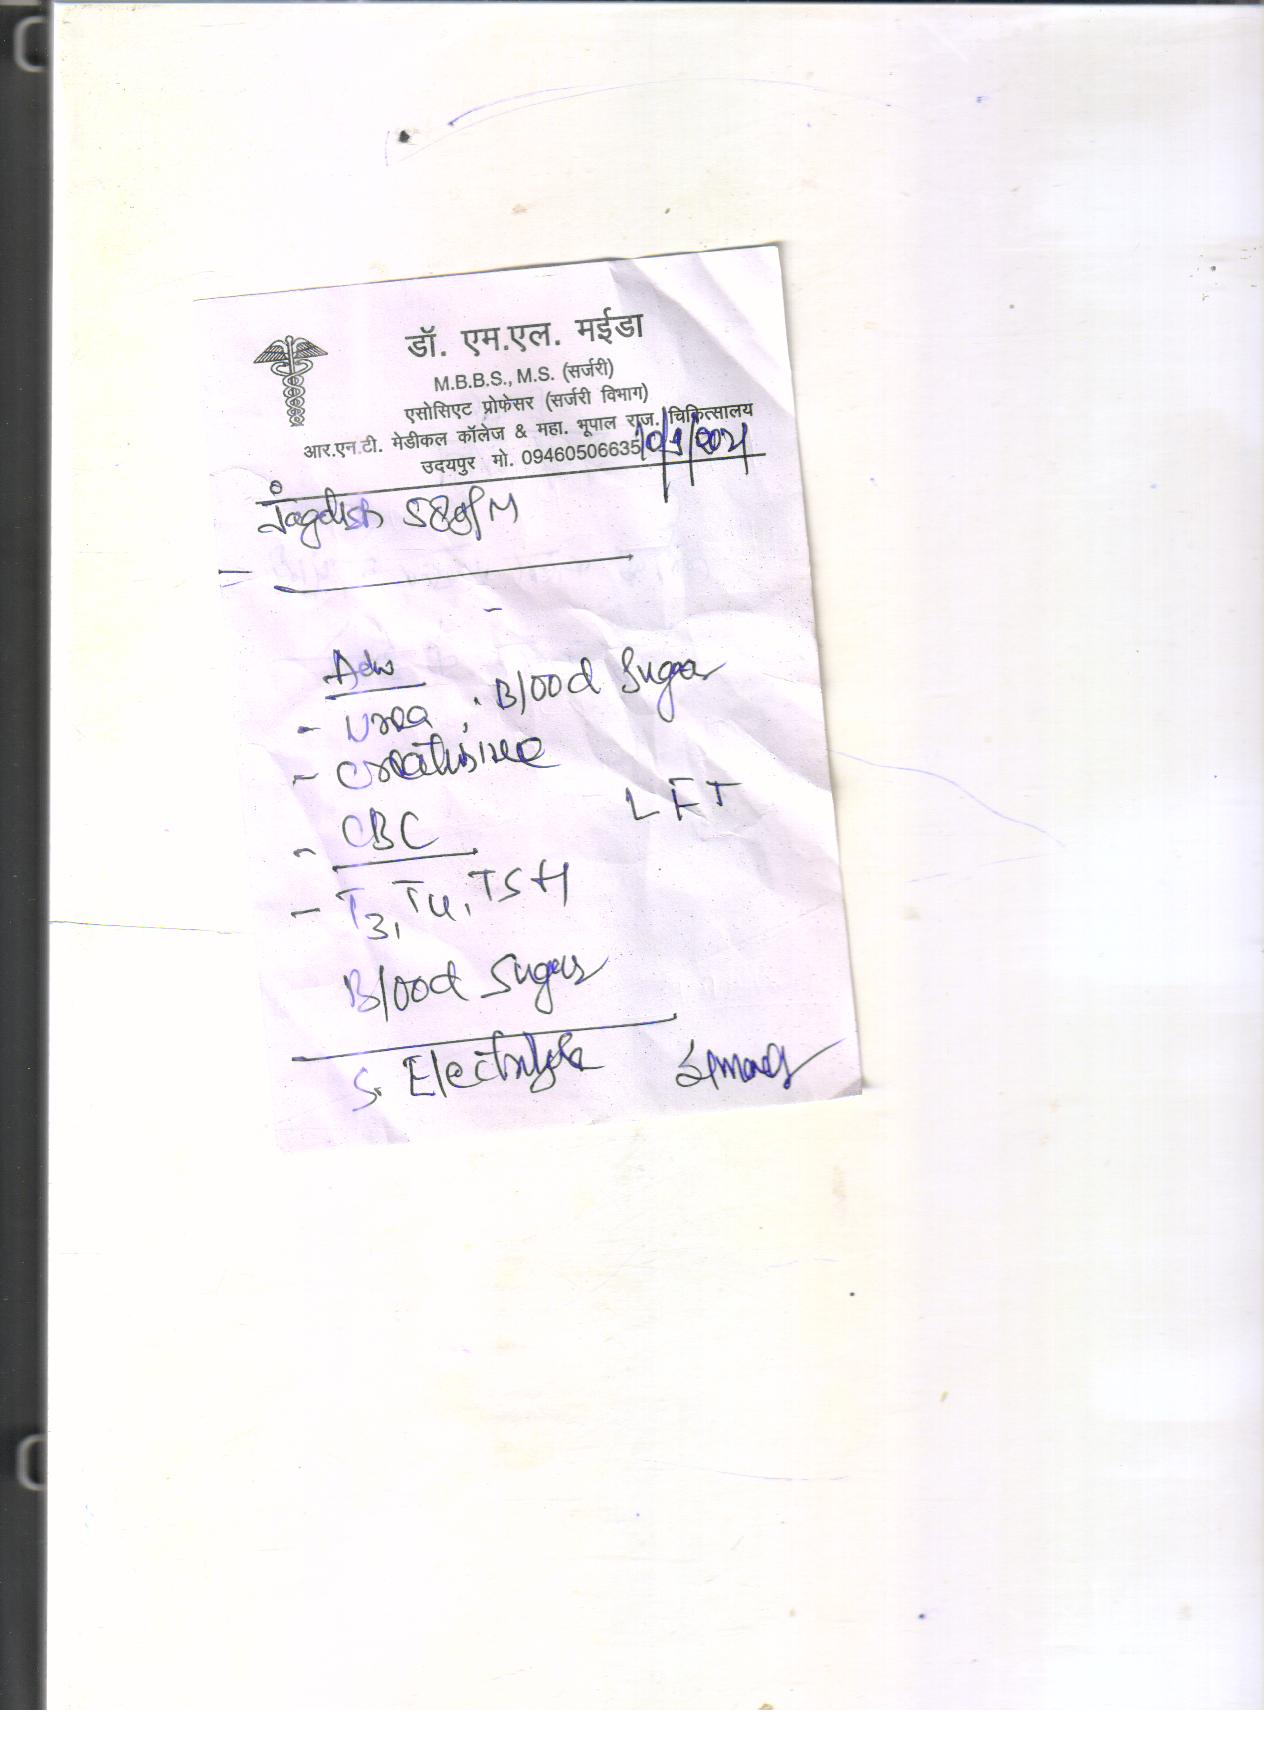 डॉ. एम.एल. मईडा
M.B.B.S., M.S. (सर्जरी)
एसोसिएट प्रोफेसर (सर्जरी विभाग)
आर.एन.टी. मेडीकल कॉलेज & महा. भूपाल राज. चिकित्सालय
उदयपुर मो. 09460506635
Jagdish
Adv
- Urea , . Blood Sugar
- Creatinine
LFT
- CBC
- T3, T4, TSH
Blood Sugar
S. Electrolyte